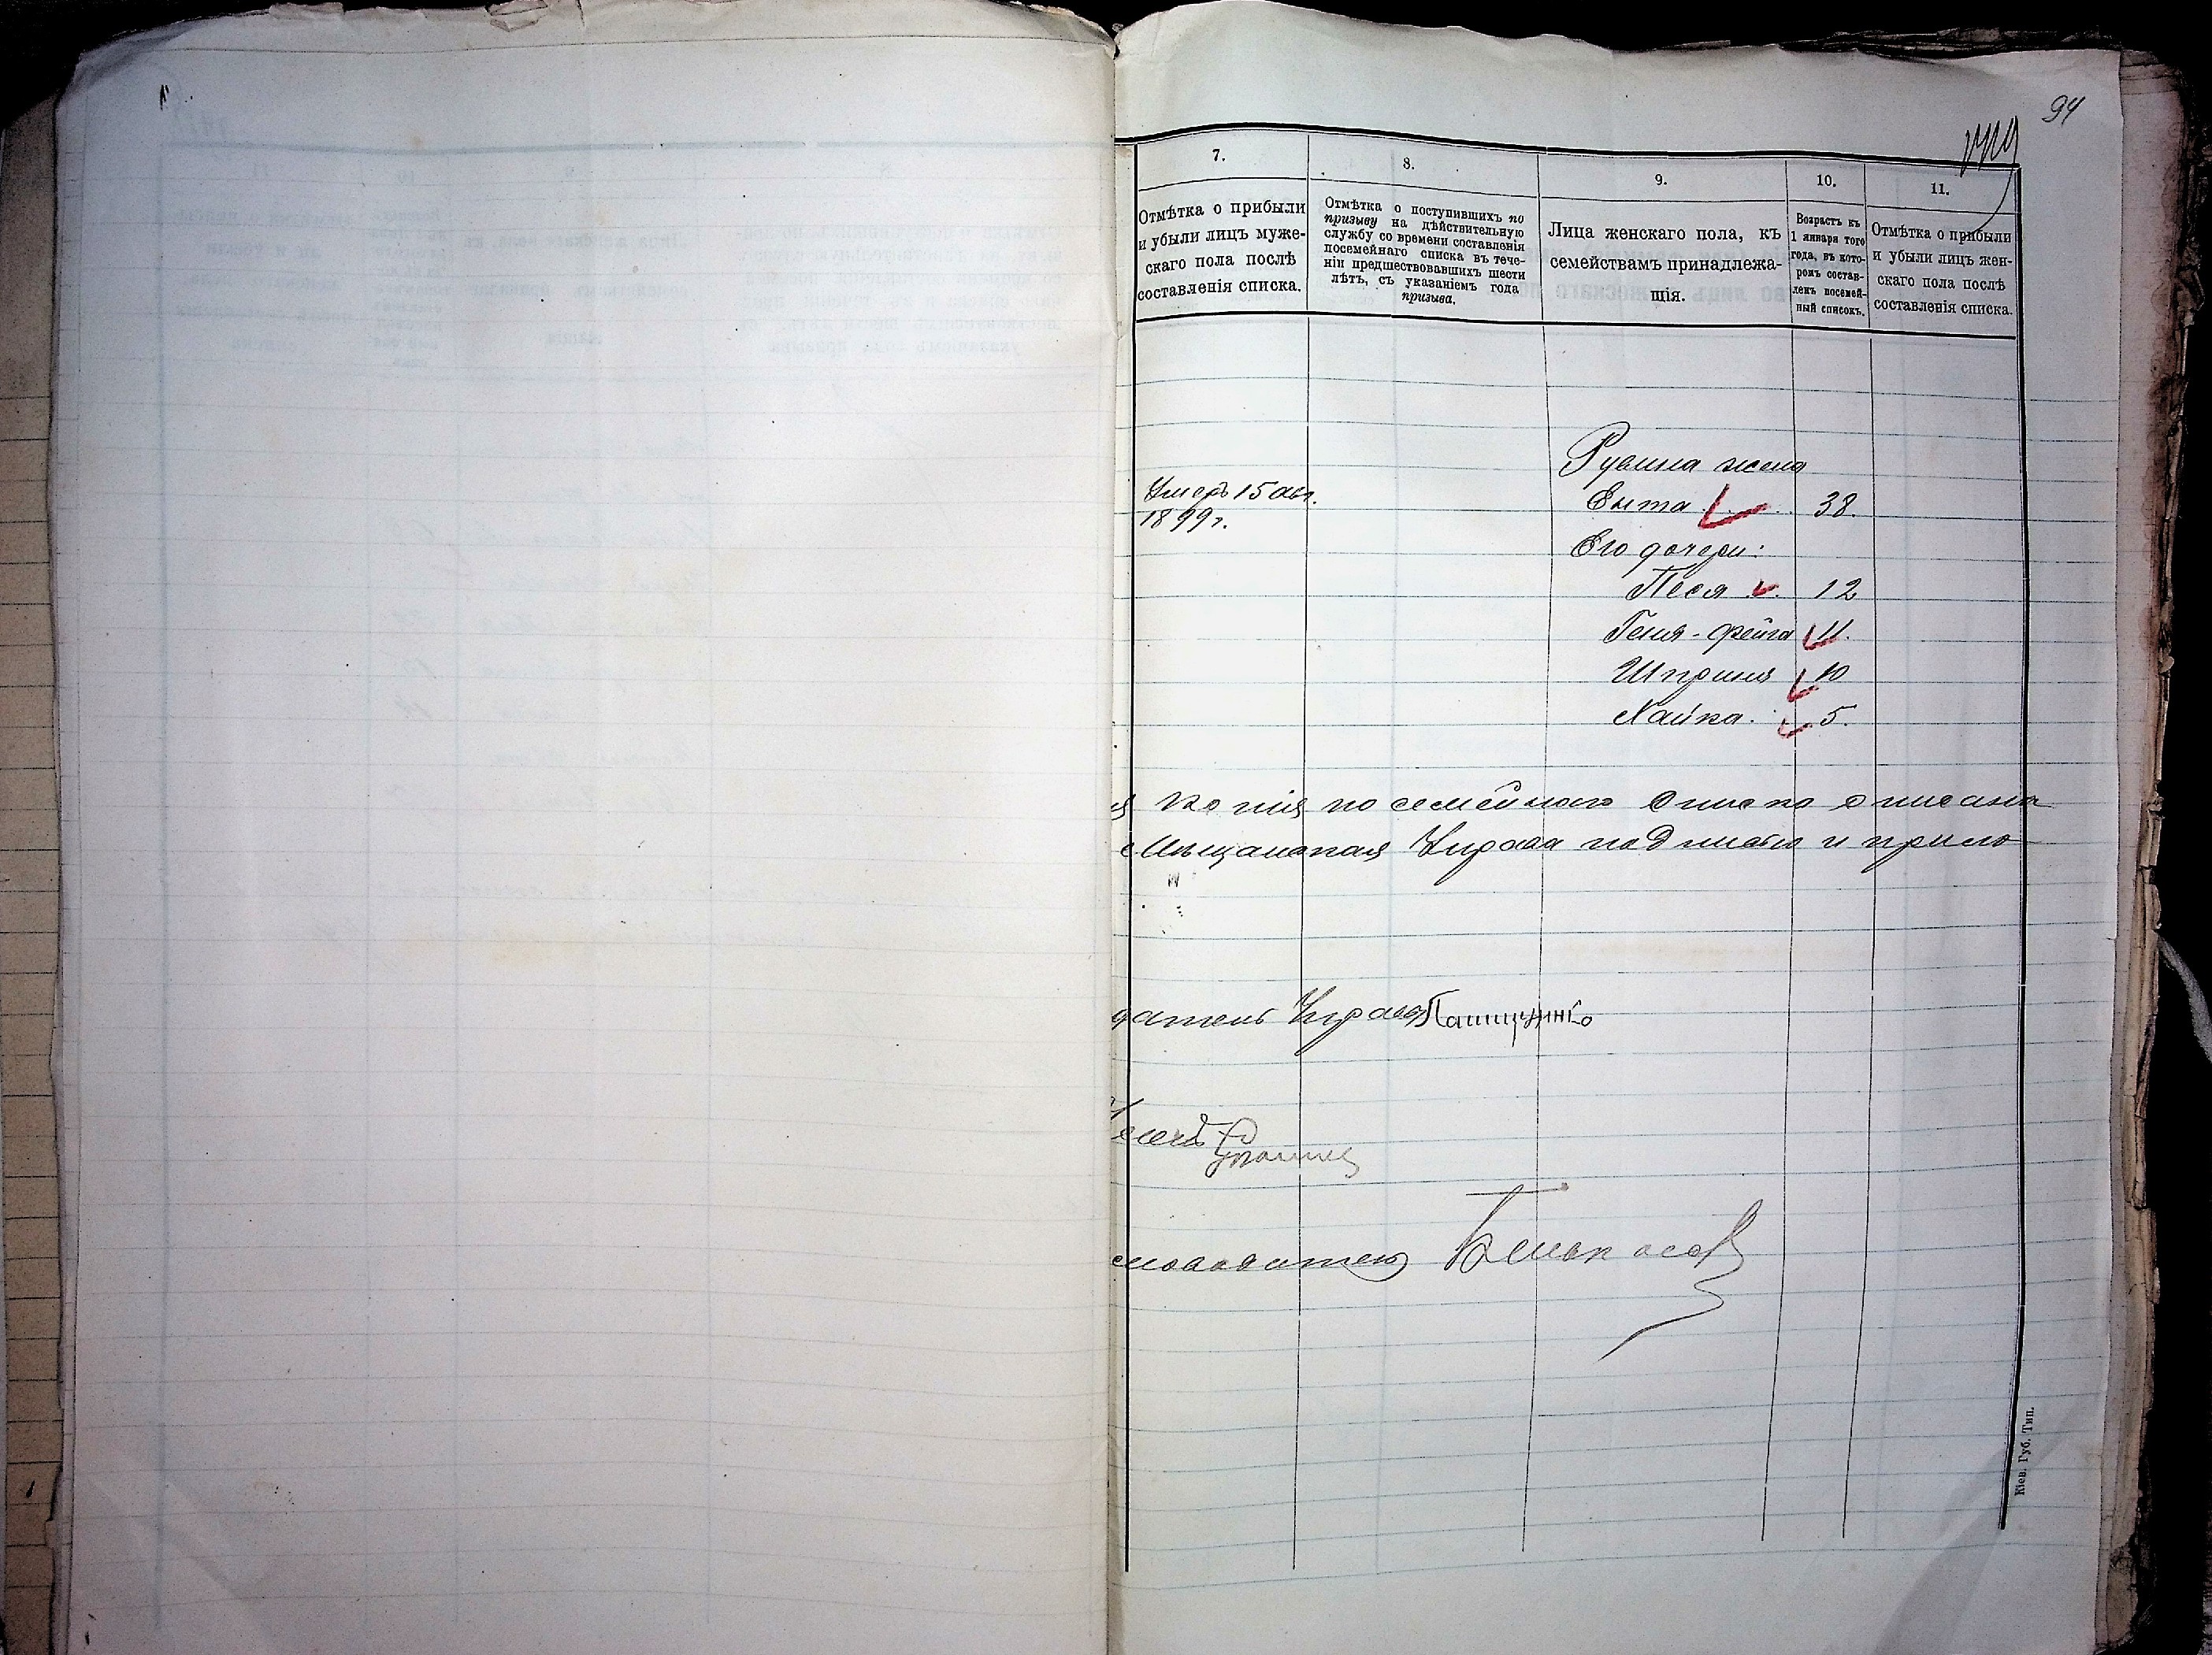 94
7.
8.
9.
10.
11.
Отмѣтка о прибыли
и убыли лицъ муже-
скаго пола послѣ
составленія списка.
Отмѣтка о поступившихъ по
призыву на дѣйствительную
службу со времени составленія
посемейнаго списка въ тече-
ніи предшествовавшихъ шести
лѣтъ, съ указаніемъ года
призыва.
Лица женскаго пола, къ
семействамъ принадлежа-
щія.
Возрастъ къ
1 января того
года, въ кото-
ромъ состав-
ленъ посемей-
ный списокъ.
Отмѣтка о прибыли
и убыли лицъ жен-
скаго пола послѣ
составленія списка.
Рувина жена
Умеръ 15 авг.
1899 г.
Сыта 38.
Его дочери:
Песя 12
Геня-Фейга 11.
Шпринця 10
Хайка. 5.
копія посемейнаго списка списана
Мѣщанская Управа подписью и прило
датель Управы
Кіев. Губ. Тип.